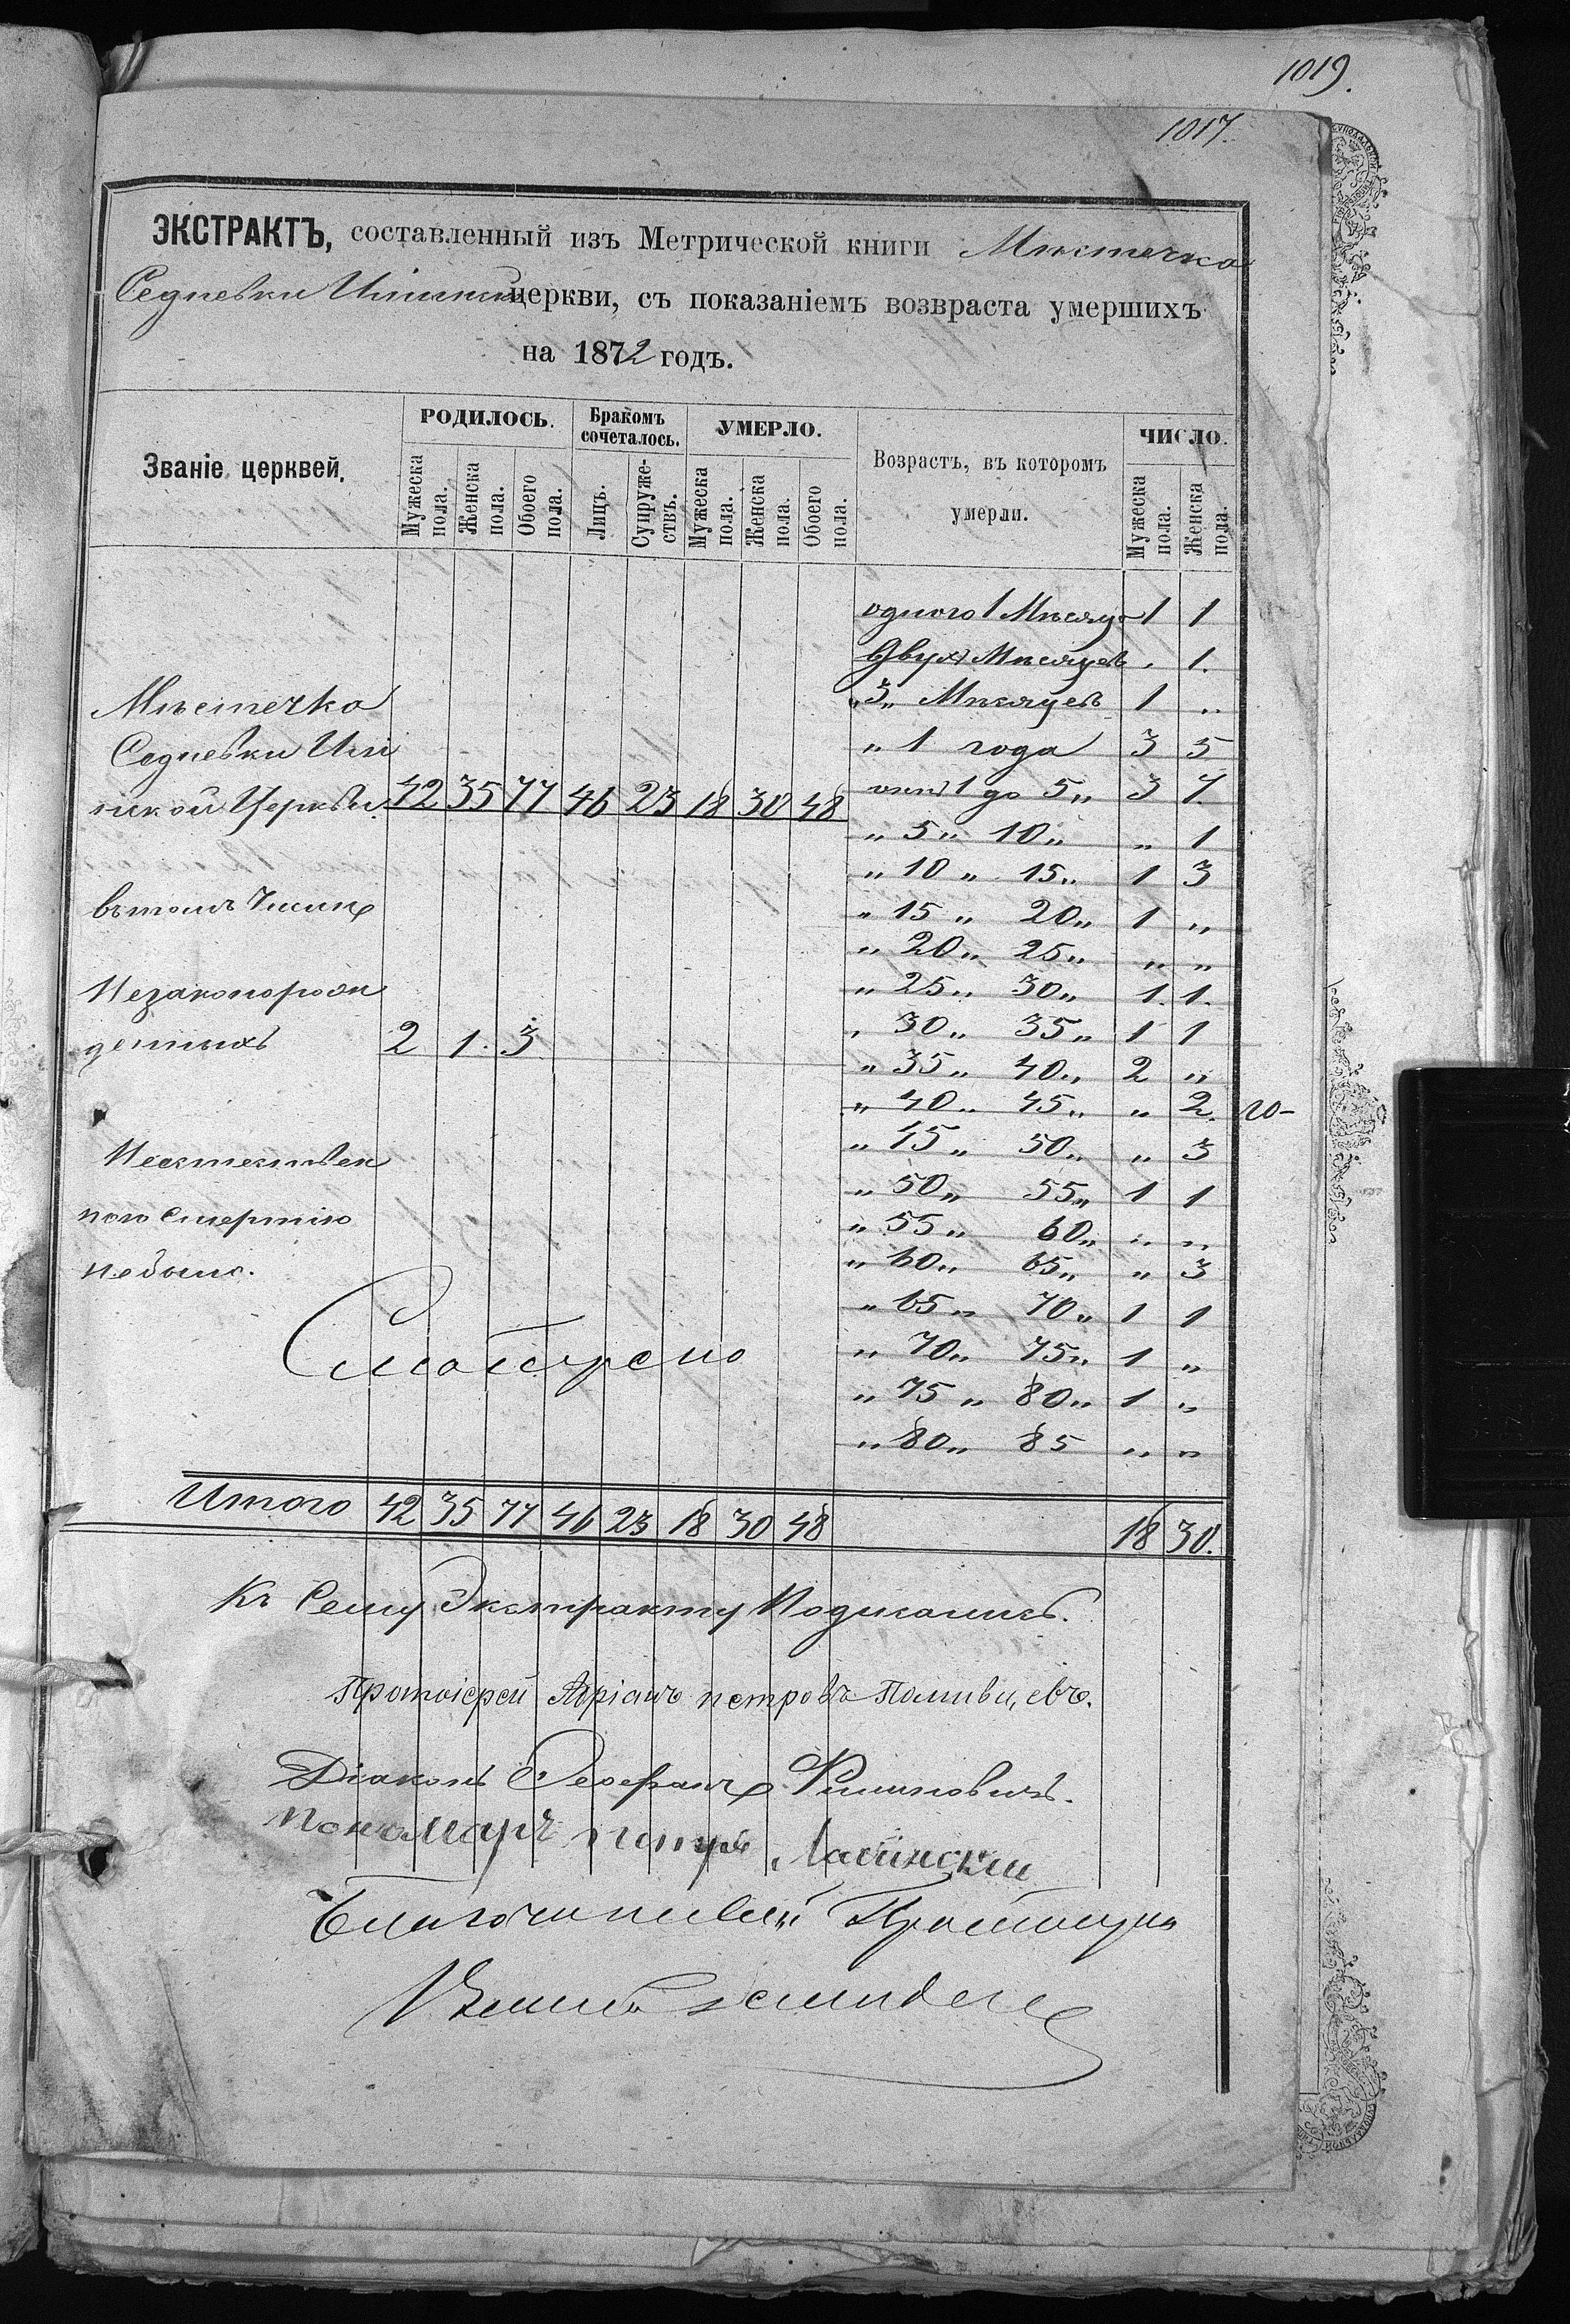 1019.
1017.
ЭКСТРАКТЪ, составленный изъ Метрической книги Мѣстечка
Седневки церкви, съ показаніемъ возвраста умершихъ
на 1872 годъ.
Званіе церквей. РОДИЛОСЬ. Бракомъ сочеталось. УМЕРЛО. Возрастъ, въ которомъ умерли. ЧИСЛО.
Мужеска пола. Женска пола. Обоего пола. Лицъ. Супружествъ. Мужеска пола. Женска пола. Обоего пола. Мужеска пола. Женска пола.
одного 1 Мѣсяца 1 1
Двухъ Мѣсяцевъ . 1.
Мѣстечка „3„ Мѣсяцевъ 1 „
Седневки „ 1 года 3 5
Церкви. 42 35 77 46 23 18 30 48 отъ 1 до 5„ 3 7.
„ 5 „ 10 „ „ 1
„ 10 „ 15 „ 1 3
въ томъ Числѣ „ 15 „ 20 „ 1 „
„ 20 „ 25 „ „ „
Незаконорож „ 25 „ 30 „ 1. 1.
денныхъ 2 1. 3 „ 30 „ 35 „ 1 1
„ 35 „ 40 „ 2 „
„ 40 „ 45 „ „ 2.
Неестествен „ 45 „ 50 „ „ 3
„ 50 „ 55 „ 1 1
ною Смертію „ 55 „ 60 „ „ „
небыло. „ 60 „ 65 „ „ 3
„ 65 „ 70 „ 1 1
Смотрено „ 70 „ 75 „ 1 „
„ 75 „ 80 „ 1 „
„ 80 „ 85 „ „
Итого 42 35 77 46 23 18 30 48 18 30.
Къ Сему Экстракту Подписались.
Протоіерей Адріанъ петровъ
Діаконъ Ѳеофанъ Филиповичъ.
Пономарь петръ
Благочинный Протоіерей